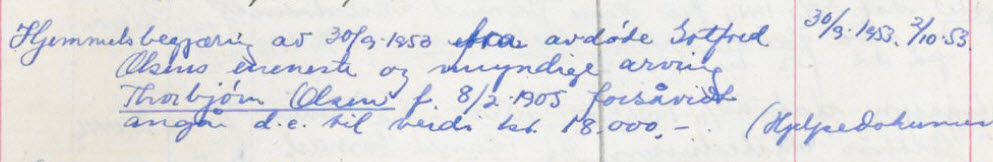 Hjemmelsbegjæring av 30/9-1953 fra avdøde Gotfred 30/9.1953. 2/10-53.
Olsens eneneste og myndige arving
Thorbjørn Olsen f. 8/2-1905 forsåvidt
angår d.e. til verdi kr. 18.000,-. (Hjelpedokumen